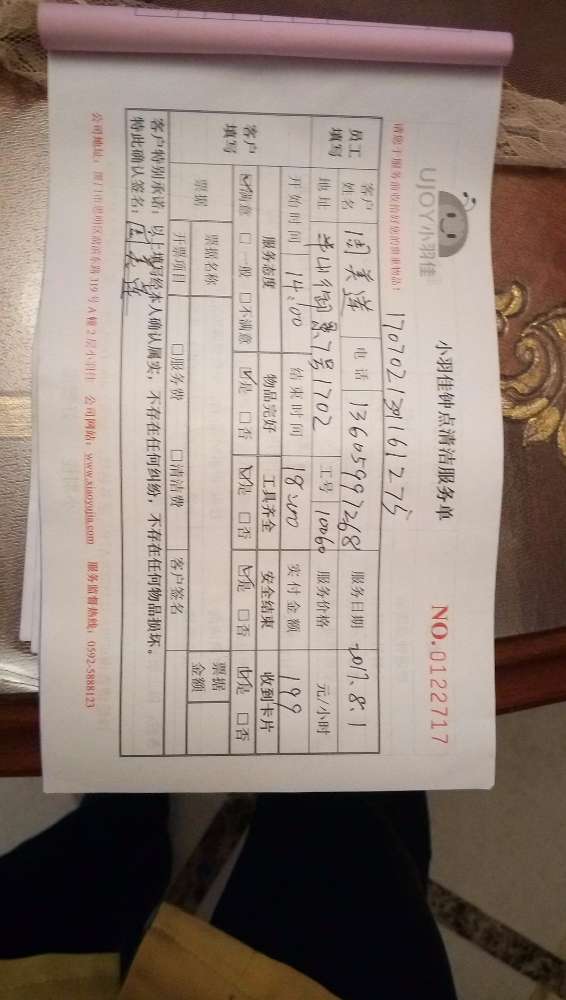 UJOY小羽佳
小羽佳钟点清洁服务单
NO.0122717
请您于服务前收拾好您的贵重物品：
员工填写 客户姓名 周美莲 电话 13605997268 服务日期 2017.8.1
地址 7号1702 工号 10060 服务价格 元/小时
开始时间 14:00 结束时间 18:00 实付金额 199
客户填写 服务态度 物品完好 工具齐全 安全结束 收到卡片
☑满意 □一般 □不满意 ☑是 □否 ☑是 □否 ☑是 □否 ☑是 □否
票据 票据名称 票据金额
开票项目 □服务费 □清洁费 客户签名
客户特别承诺：以上填写经本人确认属实，不存在任何纠纷，不存在任何物品损坏。
特此确认签名：周美莲
公司地址：厦门市思明区湖滨东路319号A幢2层小羽佳 公司网站：www.xiaoyujia.com 服务监督热线：0592-5888123